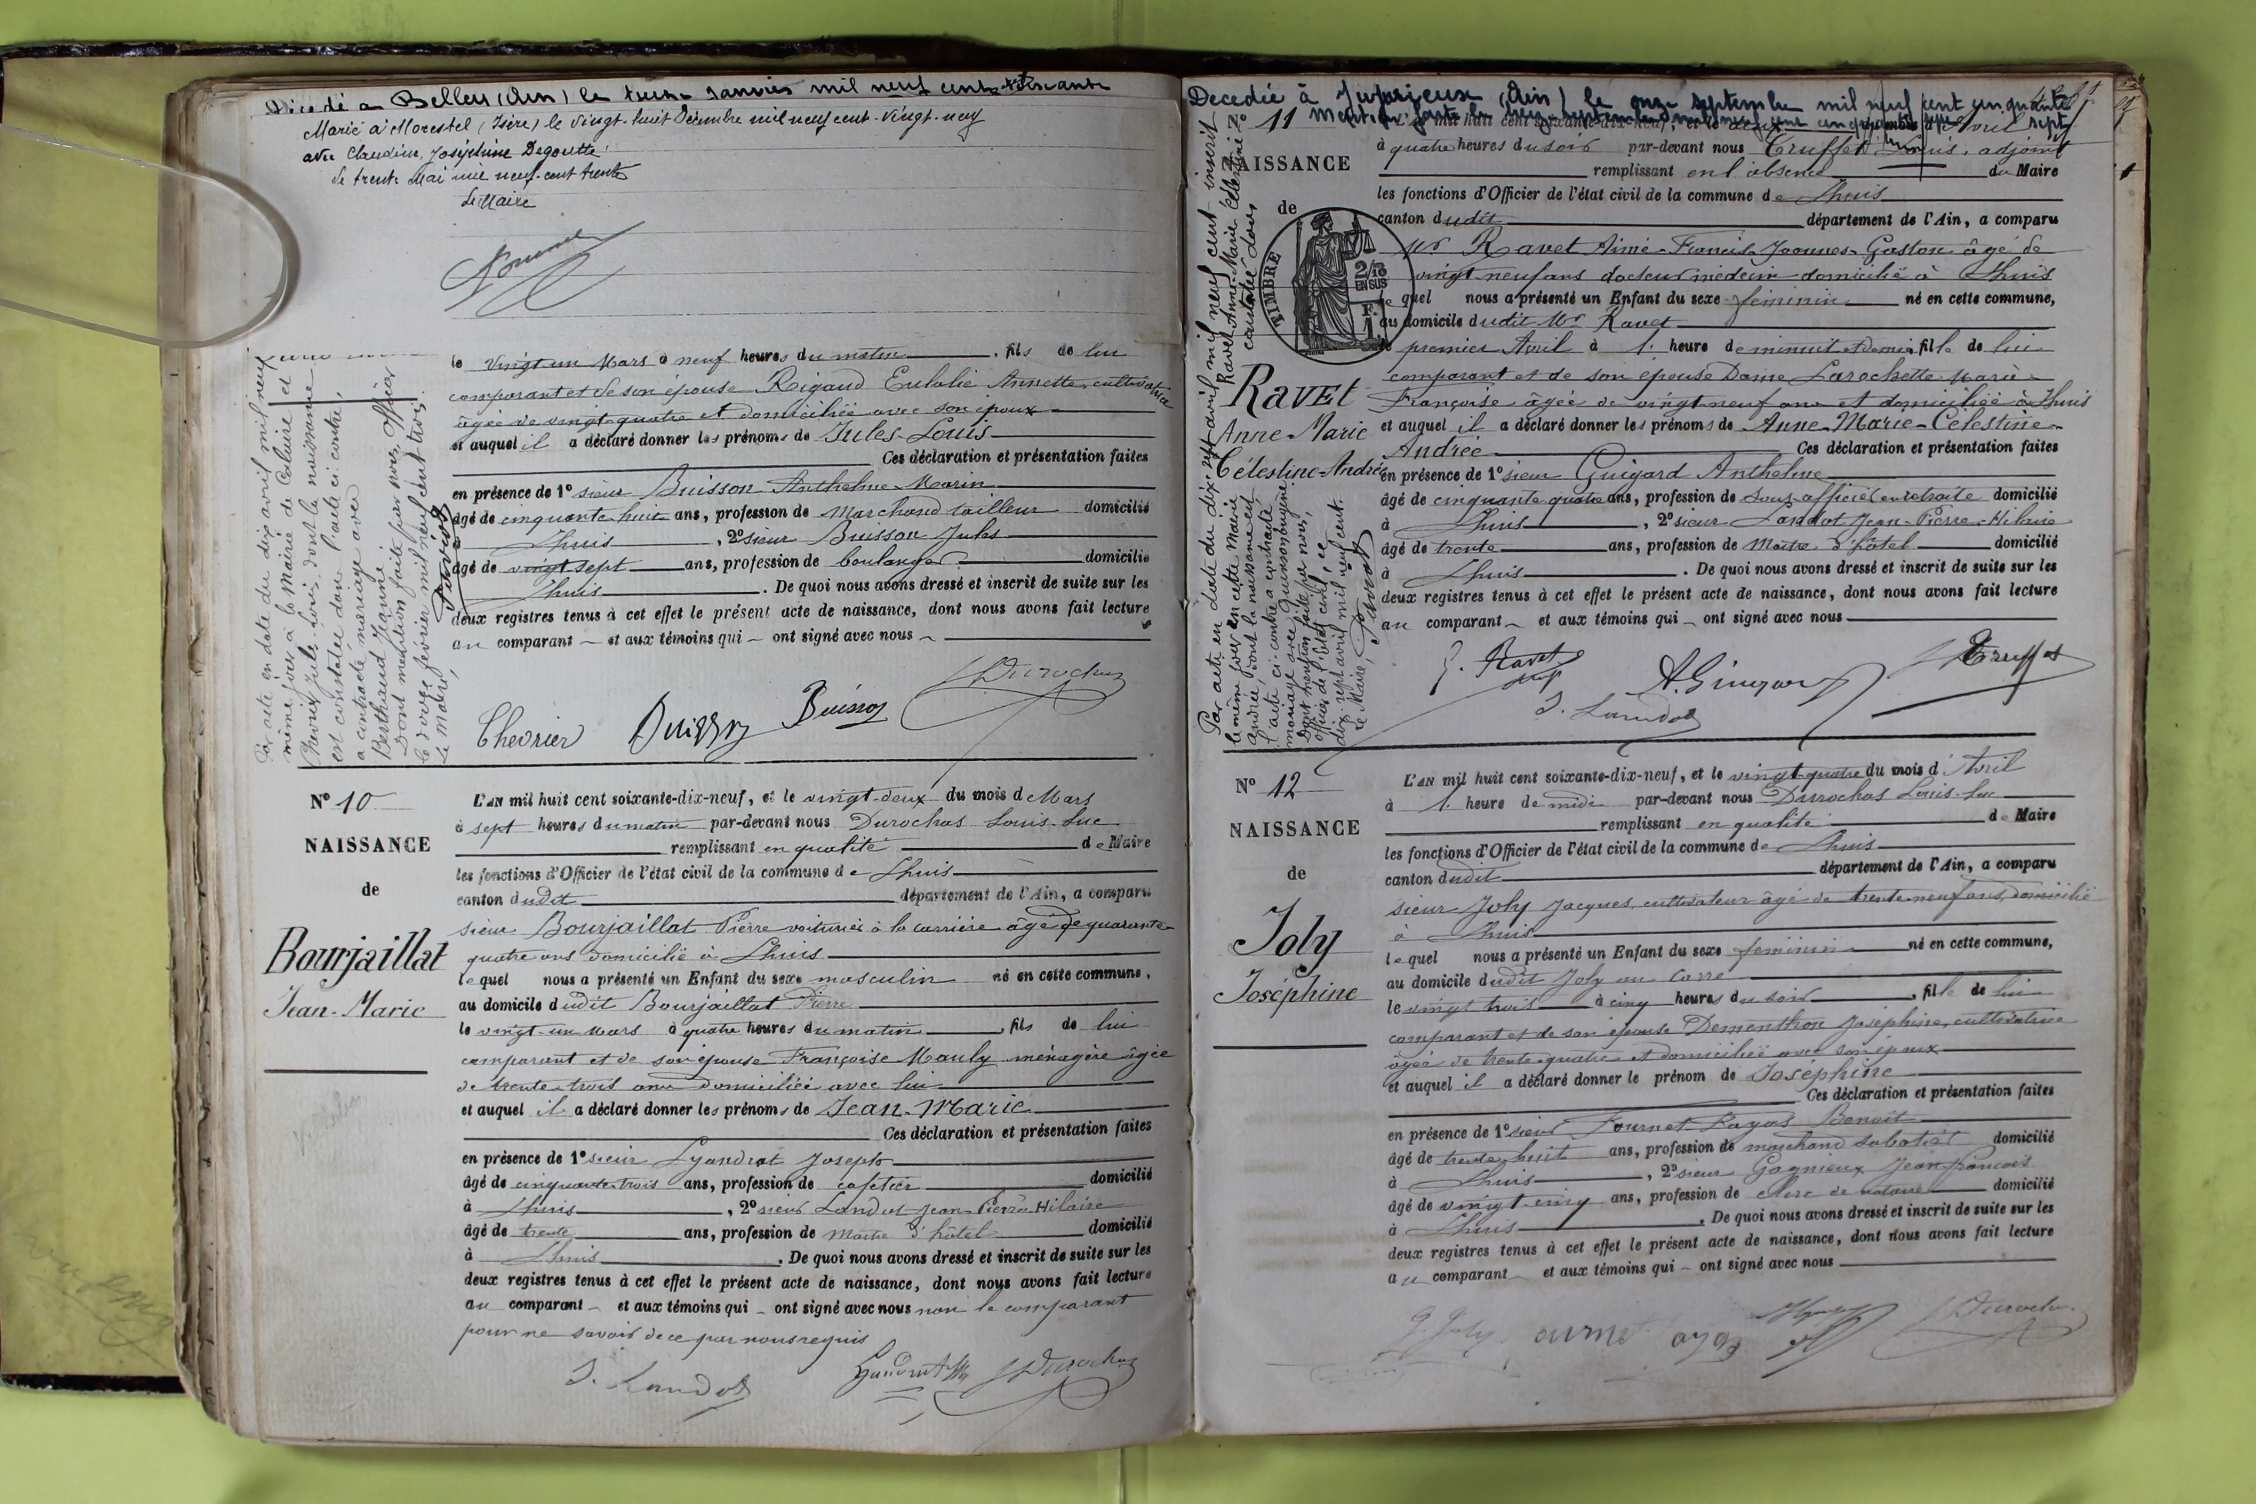 Décédé à Belley (Ain) le treize Janvier mil neuf cent soixante
Marié à Morestel (Isère) le vingt-huit Décembre mil neuf cent-vingt-neuf
avec Claudine Joséphine Degoutte
Le trente Mai mil neuf-cent trente
Le Maire
le vingt un Mars à neuf heures du matin, fils de lui
comparant et de son épouse Rigaud Eulalie Annette, cultivatrice
âgée de vingt-quatre et domiciliée avec son époux
et auquel il a déclaré donner les prénoms de Jules-Louis
Ces déclaration et présentation faites
en présence de 1º sieur Buisson Anthelme Marin
âgé de cinquante huit ans, profession de marchand tailleur domicilié
à Lhuis, 2º sieur Buisson Jules
âgé de vingt sept ans, profession de boulanger domicilié
Lhuis. De quoi nous avons dressé et inscrit de suite sur les
deux registres tenus à cet effet le présent acte de naissance, dont nous avons fait lecture
au comparant et aux témoins qui ont signé avec nous
Par acte en date du dix avril mil neuf
même jour à la Mairie de Caluire et
Jules-Louis, dont la naissance
est constatée dans l'acte ci-contre,
a contracté mariage avec
Berthaud Jeannie
Dont mention faite par nous, Officier
Le Maire,
Chevrier Buisson Buisson Durochas
Nº 10
NAISSANCE
de
Bourjaillat
Jean-Marie
L'AN mil huit cent soixante-dix-neuf, et le vingt-deux du mois de Mars
à sept heures du matin par-devant nous Durochas Louis-Luc
remplissant en qualité de Maire
les fonctions d'Officier de l'état civil de la commune de Lhuis
canton dudit département de l'Ain, a comparu
sieur Bourjaillat Pierre voiturier à la carrière âgé de quarante
quatre ans domicilié à Lhuis
lequel nous a présenté un Enfant du sexe masculin né en cette commune,
au domicile dudit Bourjaillat Pierre
le vingt-un Mars à quatre heures du matin, fils de lui
comparant et de son épouse Françoise Mauly ménagère âgée
de trente-trois ans domiciliée avec lui
et auquel il a déclaré donner les prénoms de Jean-Marie
Ces déclaration et présentation faites
en présence de 1º sieur Lyandrat Joseph
âgé de cinquante-trois ans, profession de cafetier domicilié
à Lhuis, 2º sieur Landot Jean-Pierre-Hilaire
âgé de trente ans, profession de Maître d'hôtel domicilié
à Lhuis. De quoi nous avons dressé et inscrit de suite sur les
deux registres tenus à cet effet le présent acte de naissance, dont nous avons fait lecture
au comparant et aux témoins qui ont signé avec nous non le comparant
pour ne savoir de ce par nous requis
J. Landot Lyandrat Durochas
Decedée à Jujurieux (Ain) le onze septembre mil neuf cent cinquante sept
11
NAISSANCE
de
TIMBRE
2/10
EN SUS
1 F.
RAVET
Anne-Marie
Célestine-Andrée
L'an mil huit cent soixante-dix-neuf, et le deux du mois d'Avril
à quatre heures du soir par-devant nous Truffet Louis, adjoint
remplissant en l'absence du Maire
les fonctions d'Officier de l'état civil de la commune de Lhuis
canton dudit département de l'Ain, a comparu
Mr Ravet Aimé-Francis-Joannes-Gaston âgé de
vingt neuf ans docteur médecin domicilié à Lhuis
lequel nous a présenté un Enfant du sexe féminin né en cette commune,
au domicile dudit Mr Ravet
le premier Avril à 1 heure de minuit et demie, fille de lui
comparant et de son épouse Dame Larochette Marie
Françoise âgée de vingt neuf ans et domiciliée à Lhuis
et auquel il a déclaré donner les prénoms de Anne-Marie-Célestine
Andrée Ces déclaration et présentation faites
en présence de 1º sieur Guigard Anthelme
âgé de cinquante quatre ans, profession de sous-officier en retraite domicilié
à Lhuis, 2º sieur Landot Jean-Pierre-Hilaire
âgé de trente ans, profession de Maître d'hôtel domicilié
à Lhuis. De quoi nous avons dressé et inscrit de suite sur les
deux registres tenus à cet effet le présent acte de naissance, dont nous avons fait lecture
au comparant et aux témoins qui ont signé avec nous
Par acte en date du dix-sept avril mil neuf cent inscrit
le même jour en cette Mairie Ravet Anne-Marie Célestine
Andrée, dont la naissance est constatée dans
l'acte ci-contre a contracté
Dont mention faite par nous,
officier de l'état civil, ce
dix-sept avril mil neuf cent.
Le Maire,
Ravet A. Guigard Truffet
J. Landot
Nº 12
NAISSANCE
de
Joly
Joséphine
L'AN mil huit cent soixante-dix-neuf, et le vingt-quatre du mois d'Avril
à 1 heure de midi par-devant nous Durochas Louis-Luc
remplissant en qualité de Maire
les fonctions d'Officier de l'état civil de la commune de Lhuis
canton dudit département de l'Ain, a comparu
sieur Joly Jacques, cultivateur âgé de trente-neuf ans, domicilié
à Lhuis
lequel nous a présenté un Enfant du sexe féminin né en cette commune,
au domicile dudit Joly au Carre
le vingt trois à cinq heures du soir, fille de lui
comparant et de son épouse Dementhon Joséphine, cultivatrice
âgée de trente-quatre et domiciliée avec son époux
et auquel il a déclaré donner le prénom de Joséphine
Ces déclaration et présentation faites
en présence de 1º sieur Fournet Fayas Benoit
âgé de trente huit ans, profession de marchand sabotier domicilié
à Lhuis, 2º sieur Gagnieux Jean François
âgé de vingt-cinq ans, profession de clerc de notaire domicilié
à Lhuis. De quoi nous avons dressé et inscrit de suite sur les
deux registres tenus à cet effet le présent acte de naissance, dont nous avons fait lecture
au comparant et aux témoins qui ont signé avec nous
J. Joly Durochas